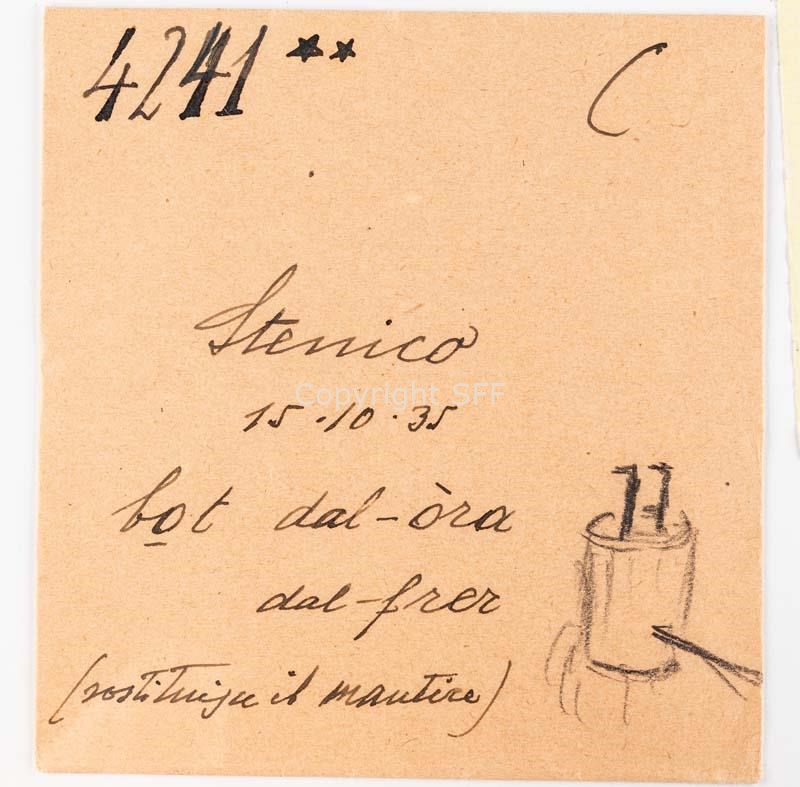 4241 ** C
Stenico
Copyright SFF
15.10.35
bo̲t dal-òra
dal-frer
(sostituisce il mantice)